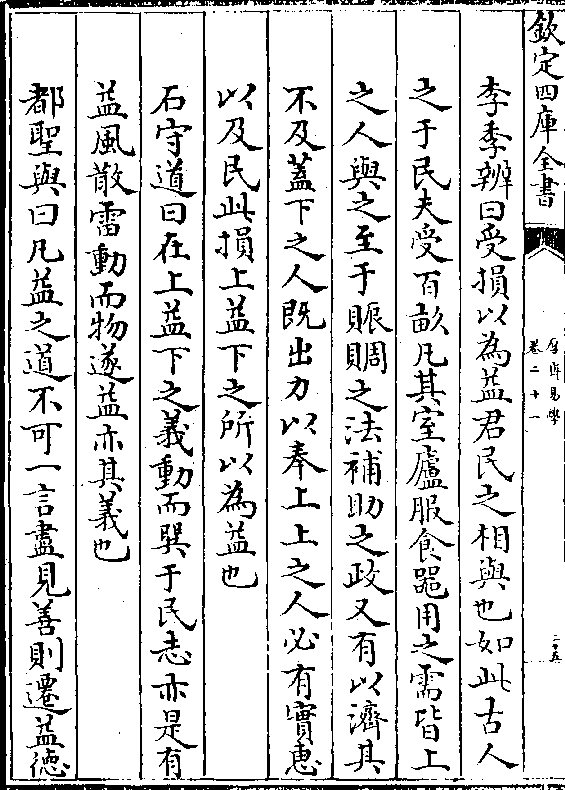 欽定四庫全書
厚齋易學
卷二十一
二十五
李季辨曰受損以為益君民之相與也如此古人
之于民夫受百畝凡其室廬服食器用之需皆上
之人與之至于賑賙之法補助之政又有以濟其
不及蓋下之人既出力以奉上上之人必有實惠
以及民此損上益下之所以為益也
石守道曰在上益下之義動而巽于民志亦是有
益風散雷動而物遂益亦其義也
都聖與曰凡益之道不可一言盡見善則遷益德